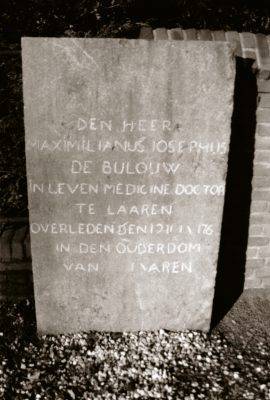 DEN HEER
MAXIMILIANUS IOSEPHUS
DE BULOUW
IN LEVEN MEDICINE DOCTOR
TE LAAREN
OVERLEDEN DEN
IN DEN OUDERDOM
VAN